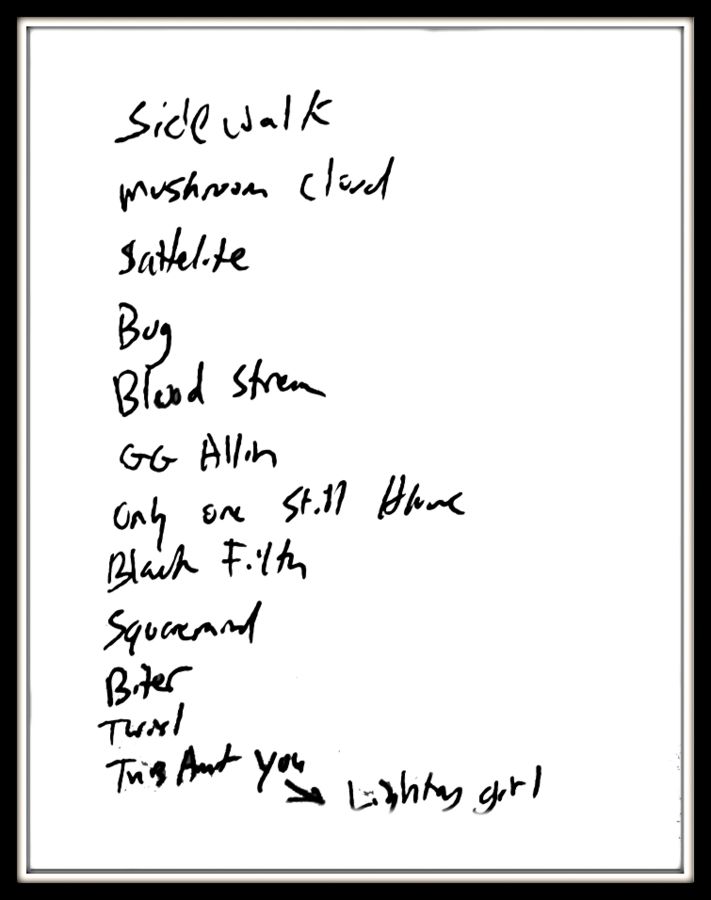 Sidewalk
mushroom cloud
Sattelite
Bug
Blood Stream
GG Allin
Only one Still Alone
Black Filth
Squaremind
Biter
Twirl
This Ain't you
Lightning girl